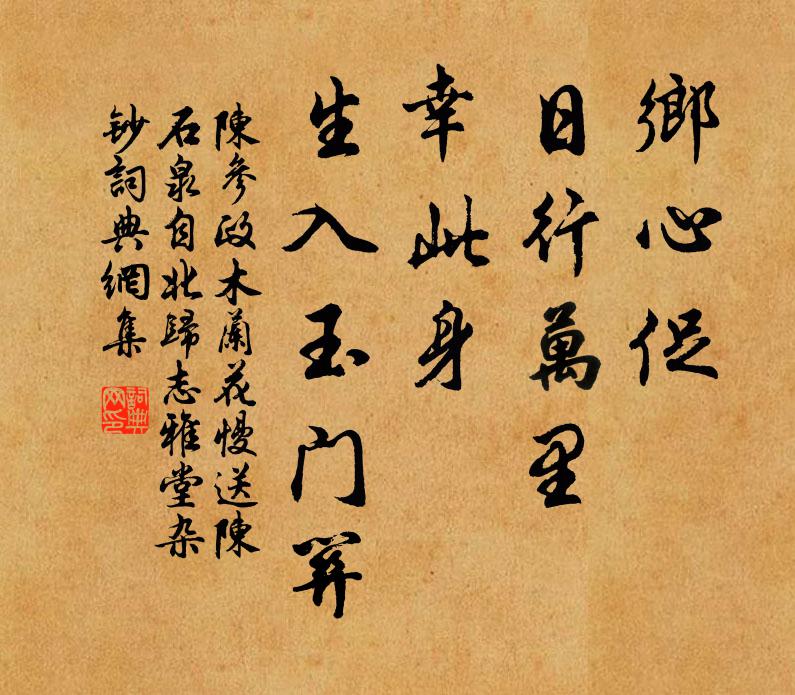 鄉心促
日行萬里
幸此身
生入玉门關
陳參政木蘭花慢送陳
石泉自北歸志雅堂杂
鈔詞典網集
詞典
网印